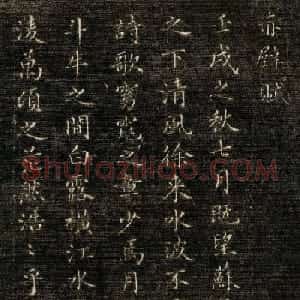 赤壁賦
壬戌之秋七月既望蘇
之下清風徐来水波不
詩歌窈窕之章少焉月
斗牛之間白露横江水
淩萬頃之茫然浩〻乎
Shufaziliao.com